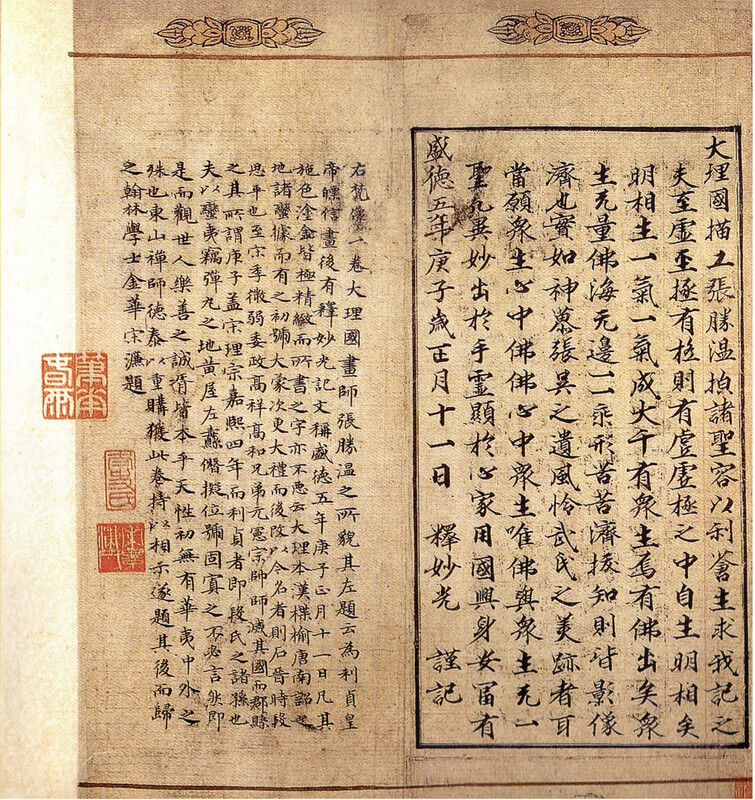 大理國描工張勝溫拍諸聖容以利蒼生求我記之
夫至虛至極有極則有虛虛極之中自生明相矣
明相生一氣一氣成大千有衆生焉有佛出矣衆
生无量佛海无邊一一乘形苦苦濟拔知則皆影像
濟也實如神慕張吴之遺風怜武氏之美跡者耳
當願衆生心中佛佛心中衆生唯佛與衆生无一
聖凡異妙出於手靈顯於心家用國興身安冨有
盛德五年庚子歲正月十一日 釋妙光 謹記
右梵像一卷大理國畫師張勝溫之所貌其左題云為利貞皇
帝信畫後有釋妙光記文稱盛德五年庚子正月十一日凡其
施色塗金皆極精緻而所書之字亦不惡云大理本漢楪榆唐南詔之
地諸蠻據而有之初號大蒙次更大禮而後改以今名者則石晉時段
思平也至宋季微弱委政高祥高和兄弟元憲宗帥師滅其國而郡縣
之其所謂庚子盖宋理宗嘉熙四年而利貞者即段氏之諸孫也
夫以蠻夷竊彈丸之地黄屋左纛僭擬位號固寘之不必言然即
是而觀世人樂善之誠胥皆本乎天性初無有華夷中外之
殊也東山禪師德泰以重購獲此卷持以相示遂題其後而歸
之翰林學士金華宋濂題